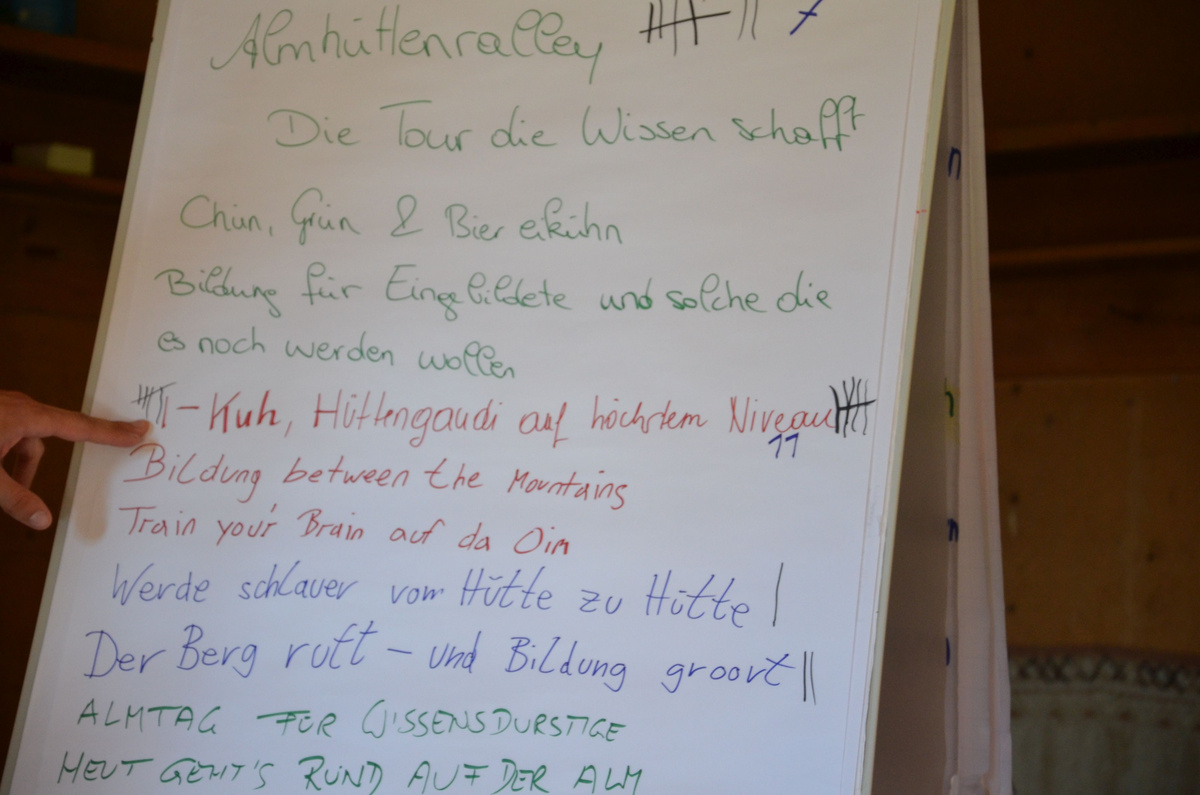 Almhüttenralley 7
Die Tour die Wissen schafft
Chün, Grün & Bier
Bildung für Eingebildete und solche die
es noch werden wollen
- Kuh, Hüttengaudi auf höchstem Niveau
11
Bildung between the Mountains
Train your Brain auf da Oim
Werde schlauer von Hütte zu Hütte
Der Berg ruft - und Bildung groort
ALMTAG FÜR WISSENSDURSTIGE
HEUT GEHT'S RUND AUF DER ALM